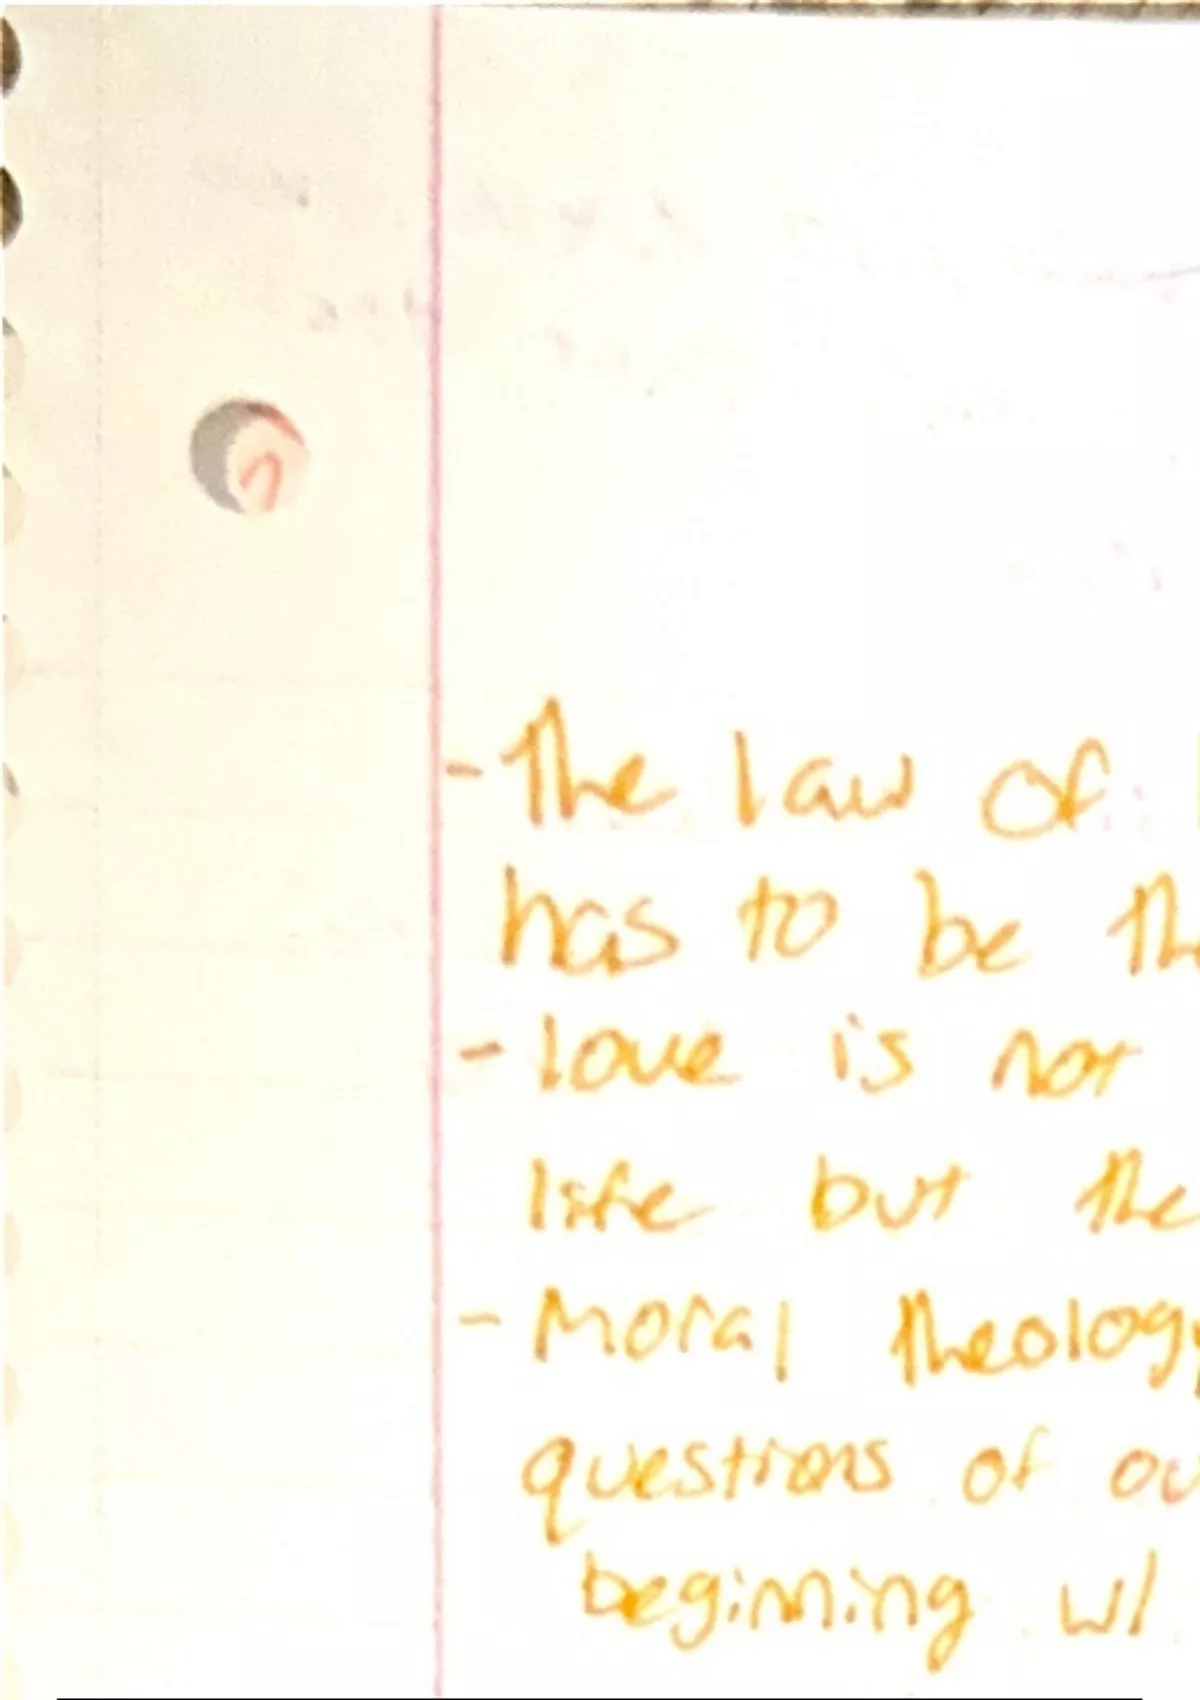 - The law of
has to be the
- love is not
life but the
- Moral theology
questions of ou
beginning w/